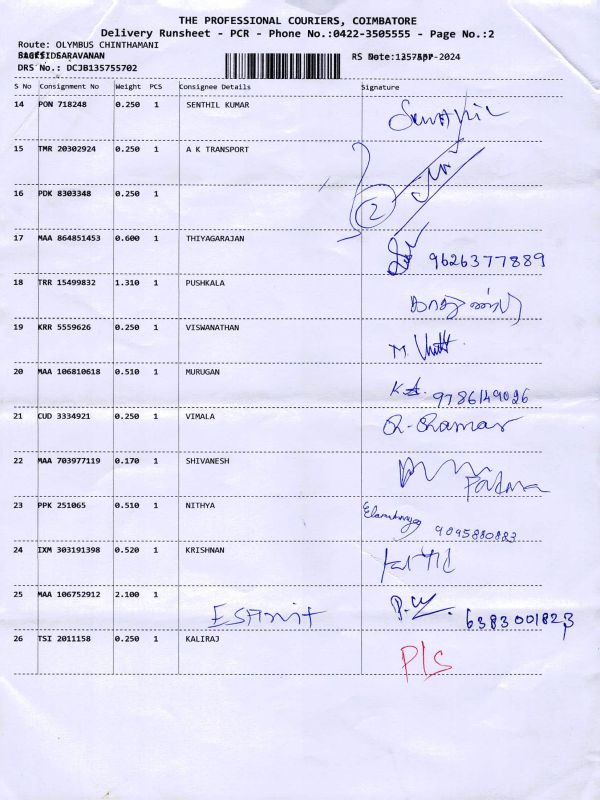 THE PROFESSIONAL COURIERS, COIMBATORE
Delivery Runsheet - PCR - Phone No.:0422-3505555 - Page No.:2
Route: OLYMBUS CHINTHAMANI
SARAVANAN
DRS No.: DCJB135755702
S No Consignment No Weight PCS Consignee Details Signature
14 PON 718248 0.250 1 SENTHIL KUMAR
15 TMR 20302924 0.250 1 A K TRANSPORT
16 PDK 8303348 0.250 1
2
17 MAA 864851453 0.600 1 THIYAGARAJAN
9626377889
18 TRR 15499832 1.310 1 PUSHKALA
19 KRR 5559626 0.250 1 VISWANATHAN
20 MAA 106810618 0.510 1 MURUGAN
9786149026
21 CUD 3334921 0.250 1 VIMALA
22 MAA 703977119 0.170 1 SHIVANESH
Padma
23 PPK 251065 0.510 1 NITHYA
9095880883
24 IXM 303191398 0.520 1 KRISHNAN
25 MAA 106752912 2.100 1
6383001823
26 TSI 2011158 0.250 1 KALIRAJ
P/S